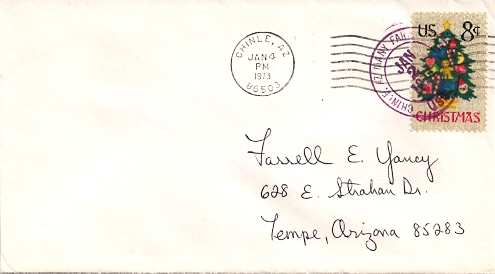 CHINLE, AZ
JAN 4
PM
1973
86503
U.S. 8¢
CHRISTMAS
CHINLE, AZ MANY FAR
JAN
Farrell E. Yancy
628 E. Strahan Dr.
Tempe, Arizona 85283